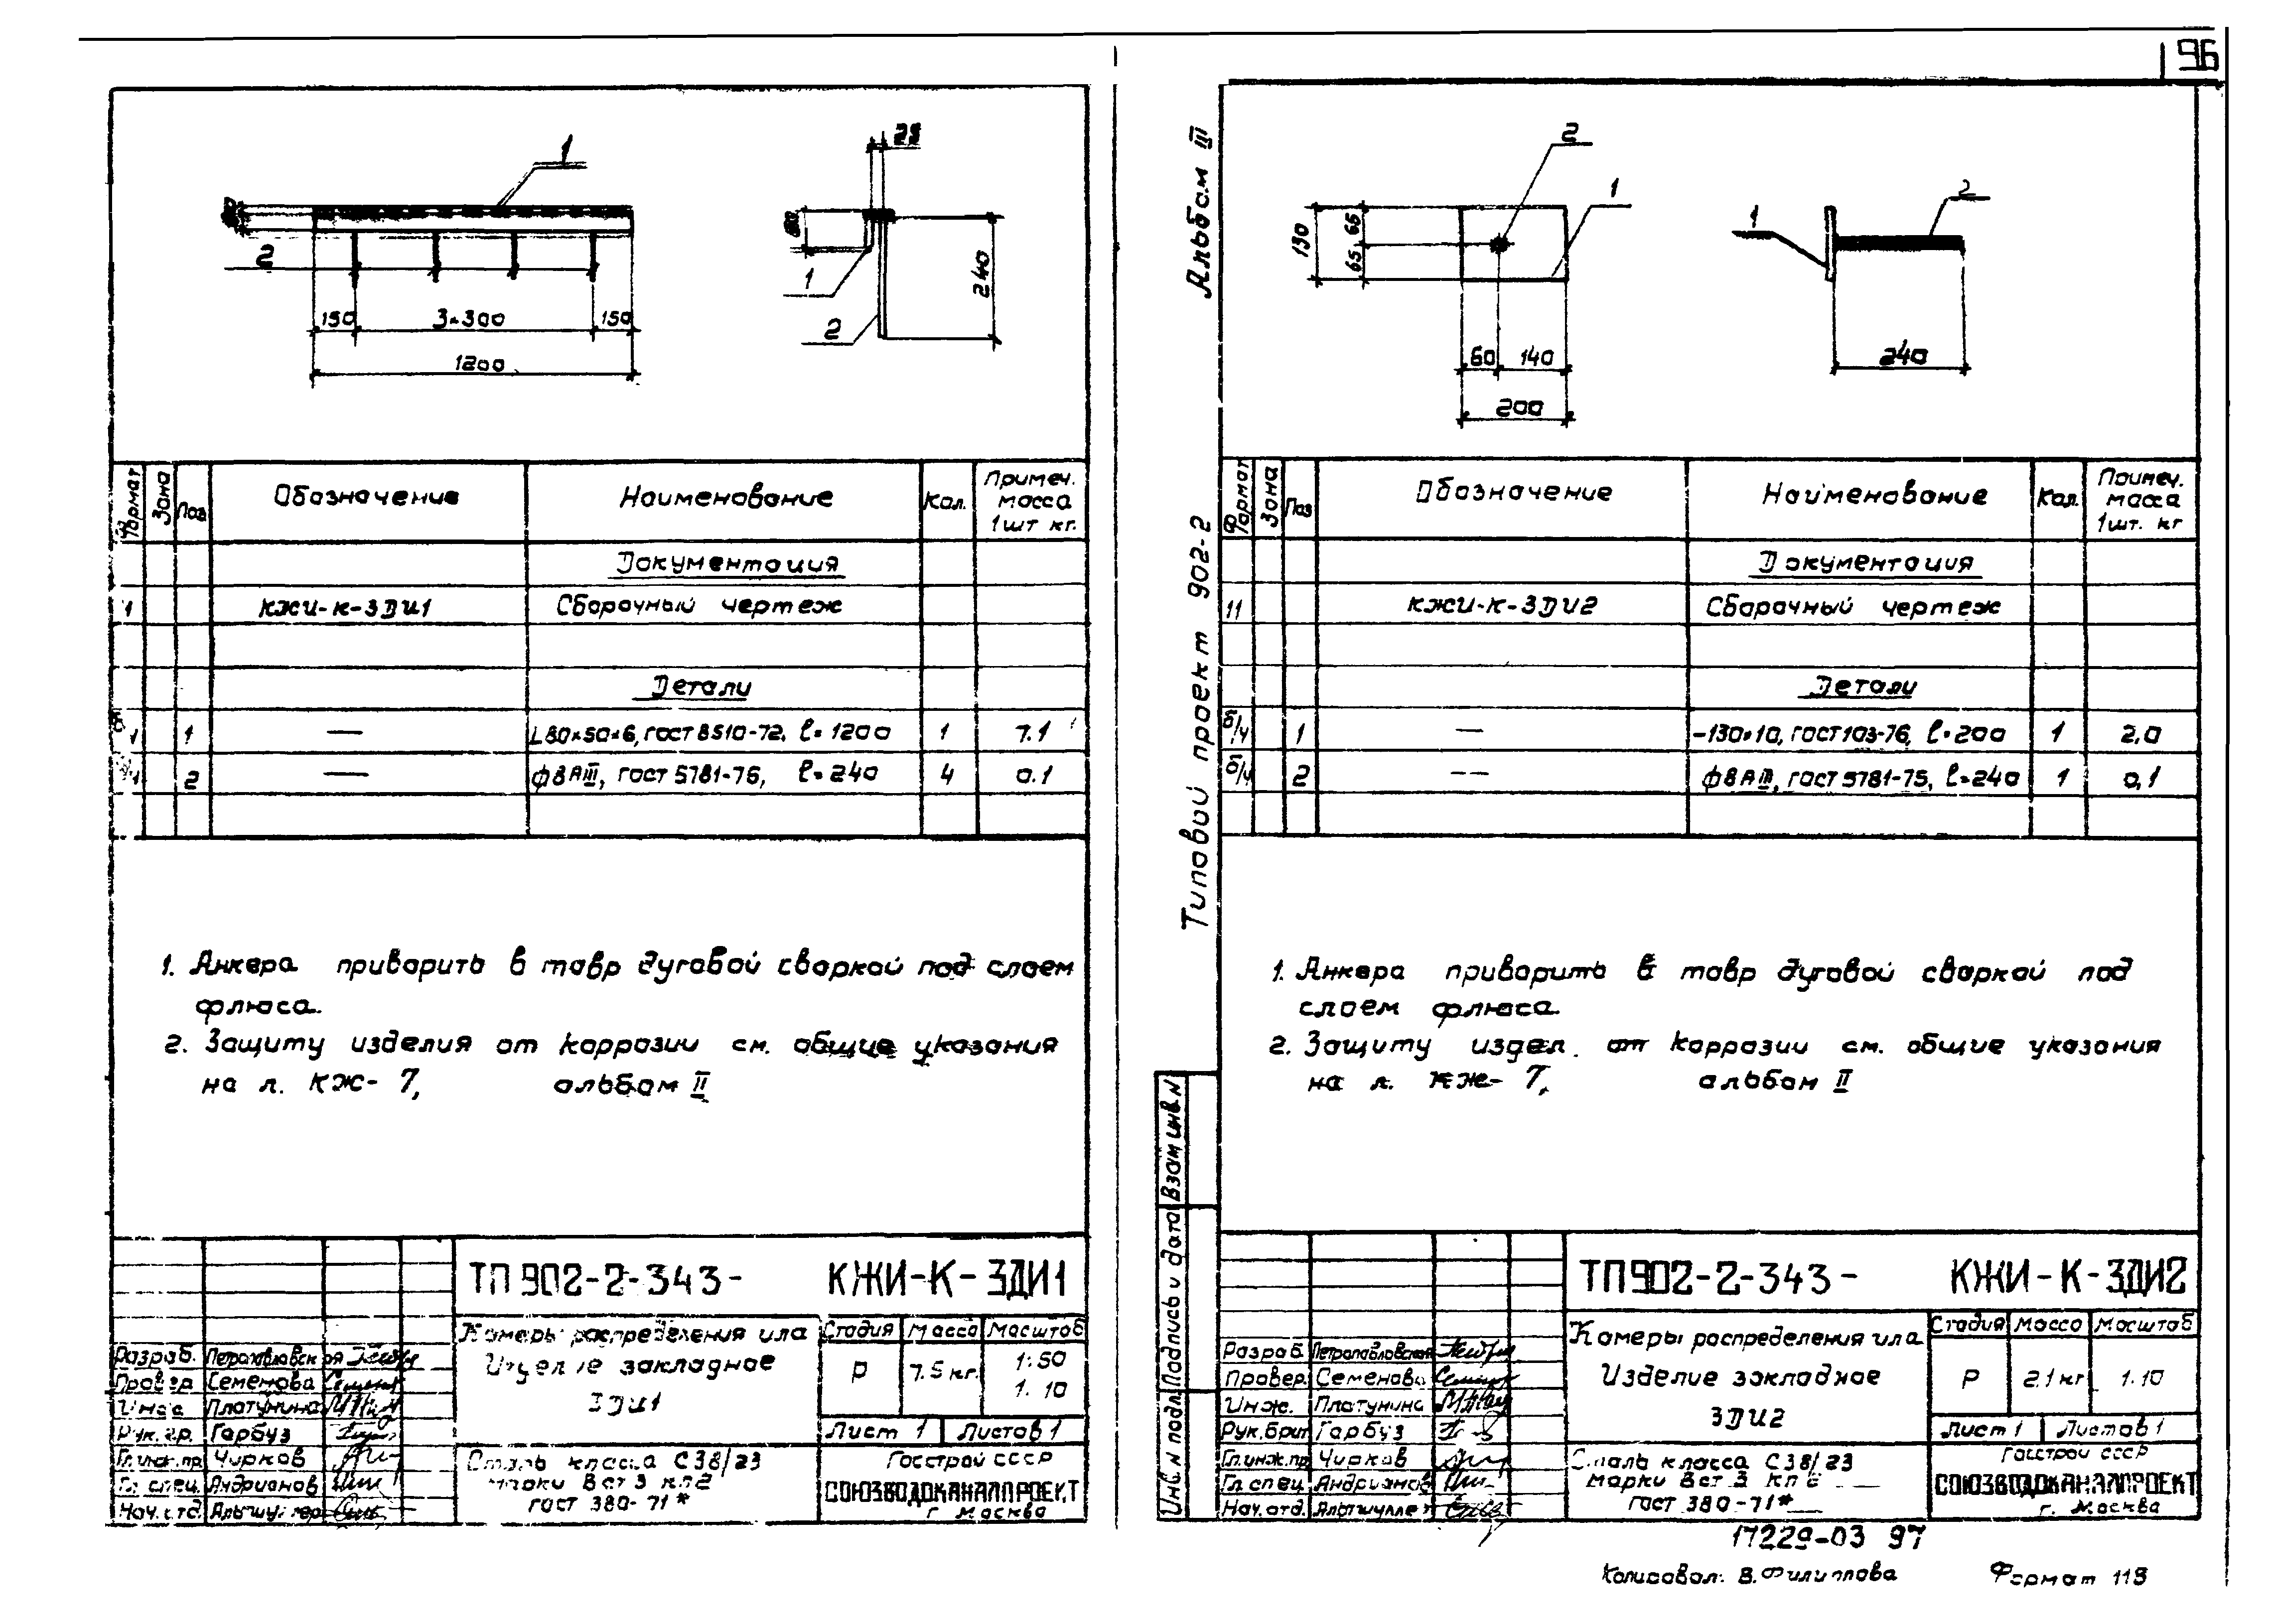 96
1
25
2
150
3×300
150
1200
1
2
240
Формат
Зона
Поз
Обозначение
Наименование
Кол.
Примеч. масса 1шт кг.
Документация
КЖИ-К-3ДИ1 Сборочный чертеж
Детали
1 — L80×50×6, ГОСТ 8510-72, ℓ=1200 1 7.1
2 — ф8АIII, ГОСТ 5781-75, ℓ=240 4 0.1
1. Анкера приварить в тавр дуговой сваркой под слоем
флюса.
2. Защиту изделия от коррозии см. общие указания
на л. КЖ-7, альбом II
ТП 902-2-343- КЖИ-К-3ДИ1
Камеры распределения ила
Изделие закладное
3ДИ1
Стадия Масса Масштаб
Р 7.5 кг. 1:50
1:10
Лист 1 Листов 1
Разраб. Петропавловская
Провер. Семенова
Инж. Платунина
Рук. гр. Гарбуз
Гл.инж.пр. Чирков
Гл. спец. Андрианов
Нач. отд. Альтшуллер
Сталь класса С38/23
марки Вст 3 кп2
ГОСТ 380-71*
Госстрой СССР
СОЮЗВОДОКАНАЛПРОЕКТ
г. Москва
Альбом III
Типовой проект 902-2
2
1
130
65
65
60
140
200
1
2
240
Формат
Зона
Поз
Обозначение
Наименование
Кол.
Примеч. масса 1шт. кг
Документация
11 КЖИ-К-3ДИ2 Сборочный чертеж
Детали
б/ч 1 — -130×10, ГОСТ 103-76, ℓ=200 1 2,0
б/ч 2 — ф8АIII, ГОСТ 5781-75, ℓ=240 1 0,1
1. Анкера приварить в тавр дуговой сваркой под
слоем флюса.
2. Защиту издел. от коррозии см. общие указания
на л. КЖ-7, альбом II
Взам инв. N
Подпись и дата
Инв. N подл.
ТП902-2-343- КЖИ-К-3ДИ2
Камеры распределения ила
Изделие закладное
3ДИ2
Стадия Масса Масштаб
Р 2.1 кг 1:10
Лист 1 Листов 1
Разраб. Петропавловская
Провер. Семенова
Инж. Платунина
Рук.бриг Гарбуз
Гл.инж.пр Чирков
Гл. спец. Андрианов
Нач. отд. Альтшуллер
Сталь класса С38/23
марки Вст 3 кп2
ГОСТ 380-71*
Госстрой СССР
СОЮЗВОДОКАНАЛПРОЕКТ
г. Москва
17229-03 97
Копировал: В.Филиппова Формат 11В